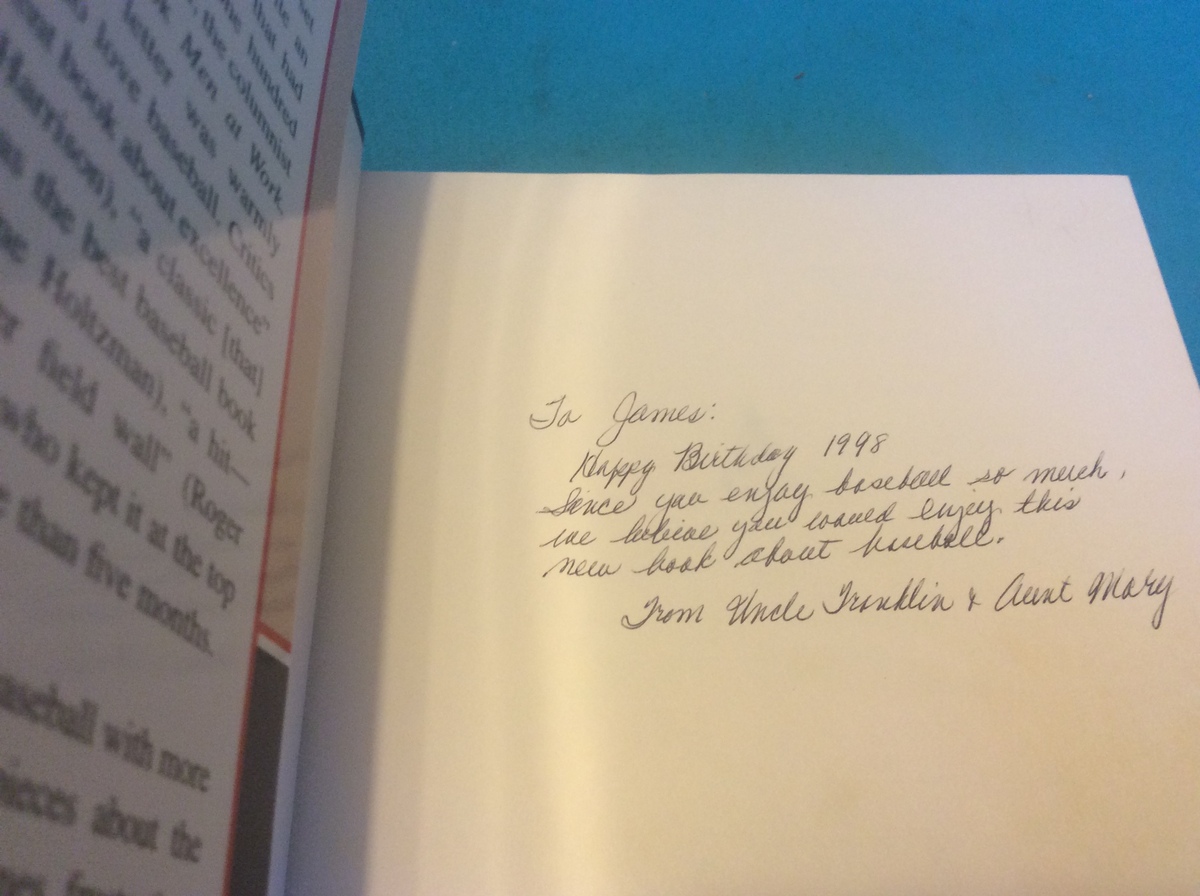 an
that had
one hundred
, the columnist
Men at Work
letter was warmly
love baseball. Critics
book about excellence"
Harrison), "a classic [that]
as the best baseball book
Holtzman), "a hit—
field wall" (Roger
who kept it at the top
than five months.
baseball with more
pieces about the
To James:
Happy Birthday 1998
Since you enjoy baseball so much,
we believe you would enjoy this
new book about baseball.
From Uncle Franklin & Aunt Mary